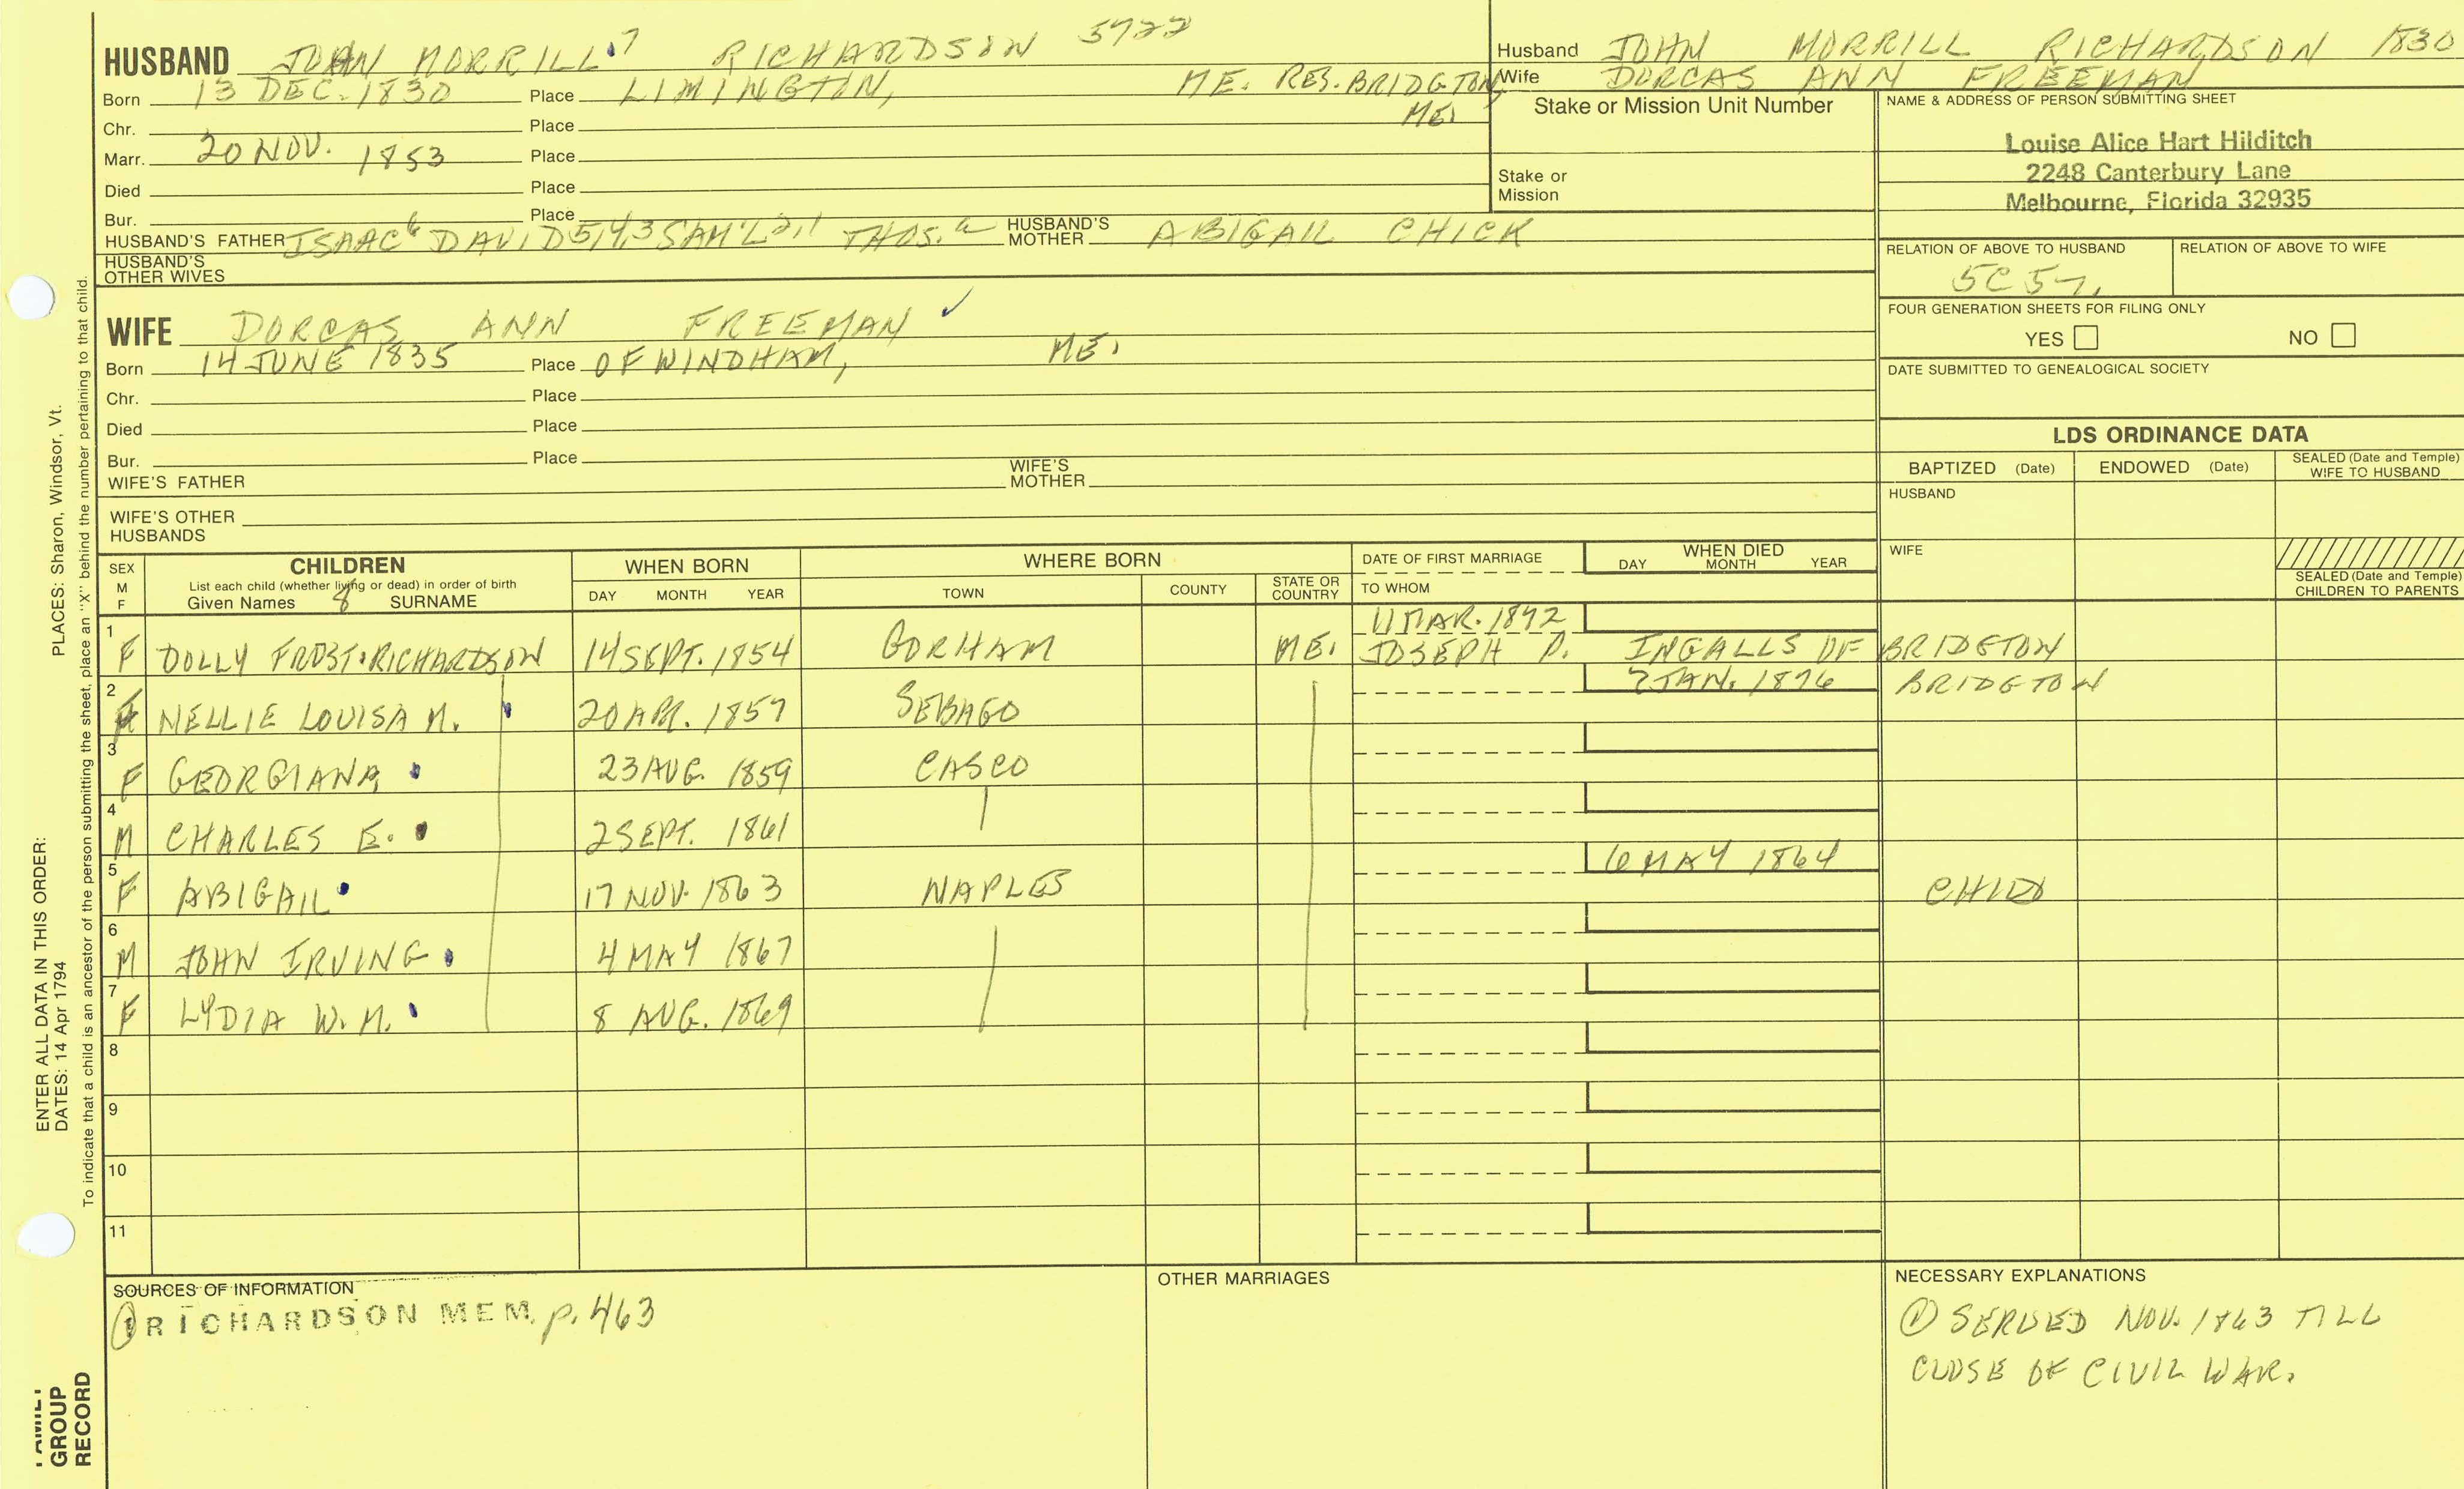 HUSBAND JOHN MORRILL 7 RICHARDSON 5722
Born 13 DEC. 1830 Place LIMINGTON, ME. RES. BRIDGTON, ME.
Chr. Place
Marr. 20 NOV. 1853 Place
Died Place
Bur. Place
HUSBAND'S FATHER ISAAC 6 DAVID 5,4,3 SAM'L 2,1 THOS. a HUSBAND'S MOTHER ABIGAIL CHICK
HUSBAND'S OTHER WIVES
WIFE DORCAS ANN FREEMAN ✓
Born 14 JUNE 1835 Place OF WINDHAM, ME.
Chr. Place
Died Place
Bur. Place
WIFE'S FATHER WIFE'S MOTHER
WIFE'S OTHER HUSBANDS
Husband JOHN MORRILL RICHARDSON 1830
Wife DORCAS ANN FREEMAN
Stake or Mission Unit Number
Stake or Mission
NAME & ADDRESS OF PERSON SUBMITTING SHEET
Louise Alice Hart Hilditch
2248 Canterbury Lane
Melbourne, Florida 32935
RELATION OF ABOVE TO HUSBAND RELATION OF ABOVE TO WIFE
5C
FOUR GENERATION SHEETS FOR FILING ONLY
YES NO
DATE SUBMITTED TO GENEALOGICAL SOCIETY
LDS ORDINANCE DATA
BAPTIZED (Date) ENDOWED (Date) SEALED (Date and Temple) WIFE TO HUSBAND
HUSBAND
WIFE
SEALED (Date and Temple) CHILDREN TO PARENTS
SEX M F
CHILDREN
List each child (whether living or dead) in order of birth
Given Names 8 SURNAME
WHEN BORN
DAY MONTH YEAR
WHERE BORN
TOWN COUNTY STATE OR COUNTRY
DATE OF FIRST MARRIAGE
TO WHOM
WHEN DIED
DAY MONTH YEAR
1 F DOLLY FROST RICHARDSON 14 SEPT. 1854 GORHAM ME. 11 MAR. 1872 JOSEPH P. INGALLS OF BRIDGTON
2 F NELLIE LOUISA M. 20 APR. 1857 SEBAGO 7 JAN. 1876 BRIDGTON
3 F GEORGIANA 23 AUG. 1859 CASCO
4 M CHARLES E. 2 SEPT. 1861
5 F ABIGAIL 17 NOV. 1863 NAPLES 6 MAY 1864 CHILD
6 M JOHN IRVING 4 MAY 1867
7 F LYDIA W. M. 8 AUG. 1869
8
9
10
11
SOURCES OF INFORMATION
① RICHARDSON MEM. p. 463
OTHER MARRIAGES
NECESSARY EXPLANATIONS
① SERVED NOV. 1863 TILL
CLOSE OF CIVIL WAR.
PLACES: Sharon, Windsor, Vt.
ENTER ALL DATA IN THIS ORDER:
DATES: 14 Apr 1794
To indicate that a child is an ancestor of the person submitting the sheet, place an "X" behind the number pertaining to that child.
FAMILY
GROUP
RECORD